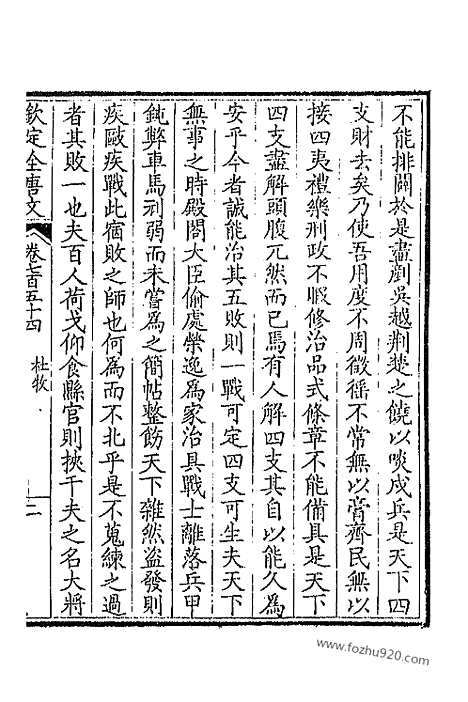 不能排闢於是盡剷吳越荆楚之饒以啖戍兵是天下四
支財去矣乃使吾用度不周徵徭不常無以膏齊民無以
接四夷禮樂刑政不暇修治品式條章不能備具是天下
四支盡解頭腹兀然而已焉有人解四支其自以能久為
安乎今者誠能治其五敗則一戰可定四支可生夫天下
無事之時殿閣大臣偷處榮逸爲家治具戰士離落兵甲
鈍弊車馬刓弱而未嘗爲之簡帖整飭天下雜然盜發則
疾敺疾戰此宿敗之師也何爲而不北乎是不蒐練之過
者其敗一也夫百人荷戈仰食縣官則挾千夫之名大將
欽定全唐文 卷七百五十四 杜牧 二
www.fozhu920.com